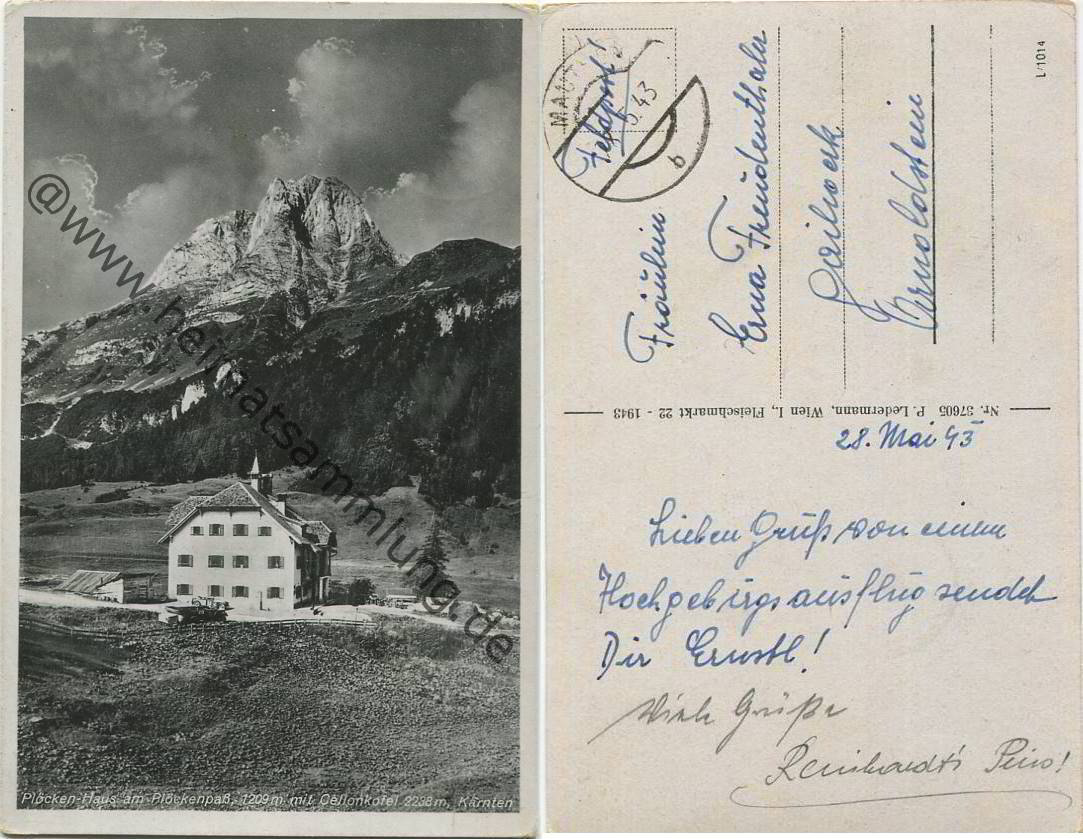 @www.heimatsammlung.de
Plöcken-Haus am Plöckenpaß, 1209 m mit Cellonkofel 2238 m, Kärnten
L/1014
Feldpost!
43
b
Fräulein
Erna Freudenthaler
Gailwerk
Arnoldstein
Nr. 37605 P. Ledermann, Wien I., Fleischmarkt 22 - 1943
28. Mai 43
Lieben Gruß von einem
Hochgebirgsausflug sendet
Dir Ernstl!
Viele Grüße